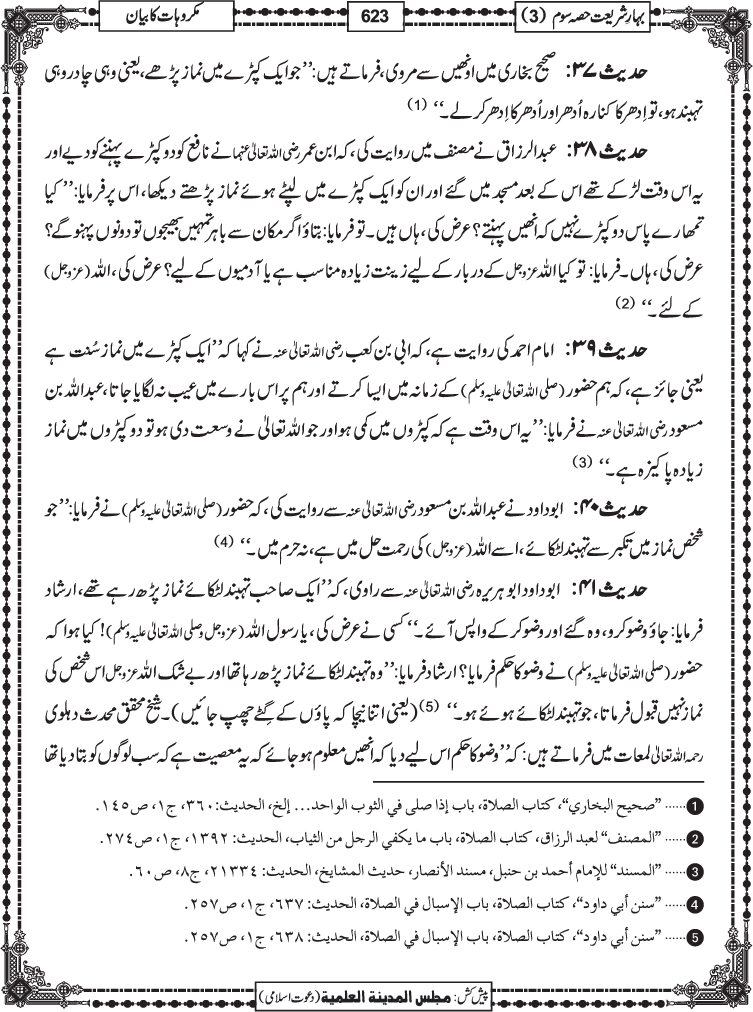 بہارِ شریعت حصہ سوم (3)
623
مکروہات کا بیان
حدیث ۳۷: صحیح بخاری میں اونھیں سے مروی، فرماتے ہیں: ’’جو ایک کپڑے میں نماز پڑھے، یعنی وہی چادر وہی
تہبند ہو، تو اِدھر کا کنارہ اُدھر اور اُدھر کا اِدھر کر لے۔‘‘ (1)
حدیث ۳۸: عبدالرزاق نے مصنف میں روایت کی، کہ ابن عمر رضی اللہ تعالیٰ عنہما نے نافع کو دو کپڑے پہننے کو دیے اور
یہ اس وقت لڑکے تھے اس کے بعد مسجد میں گئے اور ان کو ایک کپڑے میں لپٹے ہوئے نماز پڑھتے دیکھا، اس پر فرمایا: ’’کیا
تمھارے پاس دو کپڑے نہیں کہ انھیں پہنتے؟ عرض کی، ہاں ہیں۔ تو فرمایا: بتاؤ اگر مکان سے باہر تمہیں بھیجوں تو دونوں پہنو گے؟
عرض کی، ہاں۔ فرمایا: تو کیا اللہ عزوجل کے دربار کے لیے زینت زیادہ مناسب ہے یا آدمیوں کے لیے؟ عرض کی، اللہ (عزوجل)
کے لئے۔‘‘ (2)
حدیث ۳۹: امام احمد کی روایت ہے، کہ ابی بن کعب رضی اللہ تعالیٰ عنہ نے کہا کہ ’’ایک کپڑے میں نماز سُنت ہے
یعنی جائز ہے، کہ ہم حضور (صلی اللہ تعالیٰ علیہ وسلم) کے زمانہ میں ایسا کرتے اور ہم پر اس بارے میں عیب نہ لگایا جاتا، عبداللہ بن
مسعود رضی اللہ تعالیٰ عنہ نے فرمایا: ’’یہ اس وقت ہے کہ کپڑوں میں کمی ہو اور جو اللہ تعالیٰ نے وسعت دی ہو تو دو کپڑوں میں نماز
زیادہ پاکیزہ ہے۔‘‘ (3)
حدیث ۴۰: ابو داود نے عبداللہ بن مسعود رضی اللہ تعالیٰ عنہ سے روایت کی، کہ حضور (صلی اللہ تعالیٰ علیہ وسلم) نے فرمایا: ’’جو
شخص نماز میں تکبر سے تہبند لٹکائے، اسے اللہ (عزوجل) کی رحمت حل میں ہے، نہ حرم میں۔‘‘ (4)
حدیث ۴۱: ابو داود ابو ہریرہ رضی اللہ تعالیٰ عنہ سے راوی، کہ ’’ایک صاحب تہبند لٹکائے نماز پڑھ رہے تھے، ارشاد
فرمایا: جاؤ وضو کرو، وہ گئے اور وضو کر کے واپس آئے۔‘‘ کسی نے عرض کی، یا رسول اللہ (عزوجل وصلی اللہ تعالیٰ علیہ وسلم)! کیا ہوا کہ
حضور (صلی اللہ تعالیٰ علیہ وسلم) نے وضو کا حکم فرمایا؟ ارشاد فرمایا: ’’وہ تہبند لٹکائے نماز پڑھ رہا تھا اور بے شک اللہ عزوجل اس شخص کی
نماز نہیں قبول فرماتا، جو تہبند لٹکائے ہوئے ہو۔‘‘ (5) (یعنی اتنا نیچا کہ پاؤں کے گٹے چھپ جائیں)۔ شیخ محقق محدث دہلوی
رحمہ اللہ تعالیٰ لمعات میں فرماتے ہیں: کہ ’’وضو کا حکم اس لیے دیا کہ انھیں معلوم ہو جائے کہ یہ معصیت ہے کہ سب لوگوں کو بتا دیا تھا
1 ...... ”صحيح البخاري“، كتاب الصلاة، باب إذا صلى في الثوب الواحد... إلخ، الحديث: ٣٦٠، ج١، ص١٤٥.
2 ...... ”المصنف“ لعبد الرزاق، كتاب الصلاة، باب ما يكفي الرجل من الثياب، الحديث: ١٣٩٢، ج١، ص٢٧٤.
3 ...... ”المسند“ للإمام أحمد بن حنبل، مسند الأنصار، حديث المشايخ، الحديث: ٢١٣٣٤، ج٨، ص٦٠.
4 ...... ”سنن أبي داود“، كتاب الصلاة، باب الإسبال في الصلاة، الحديث: ٦٣٧، ج١، ص٢٥٧.
5 ...... ”سنن أبي داود“، كتاب الصلاة، باب الإسبال في الصلاة، الحديث: ٦٣٨، ج١، ص٢٥٧.
پیش کش: مجلس المدینۃ العلمیۃ (دعوت اسلامی)